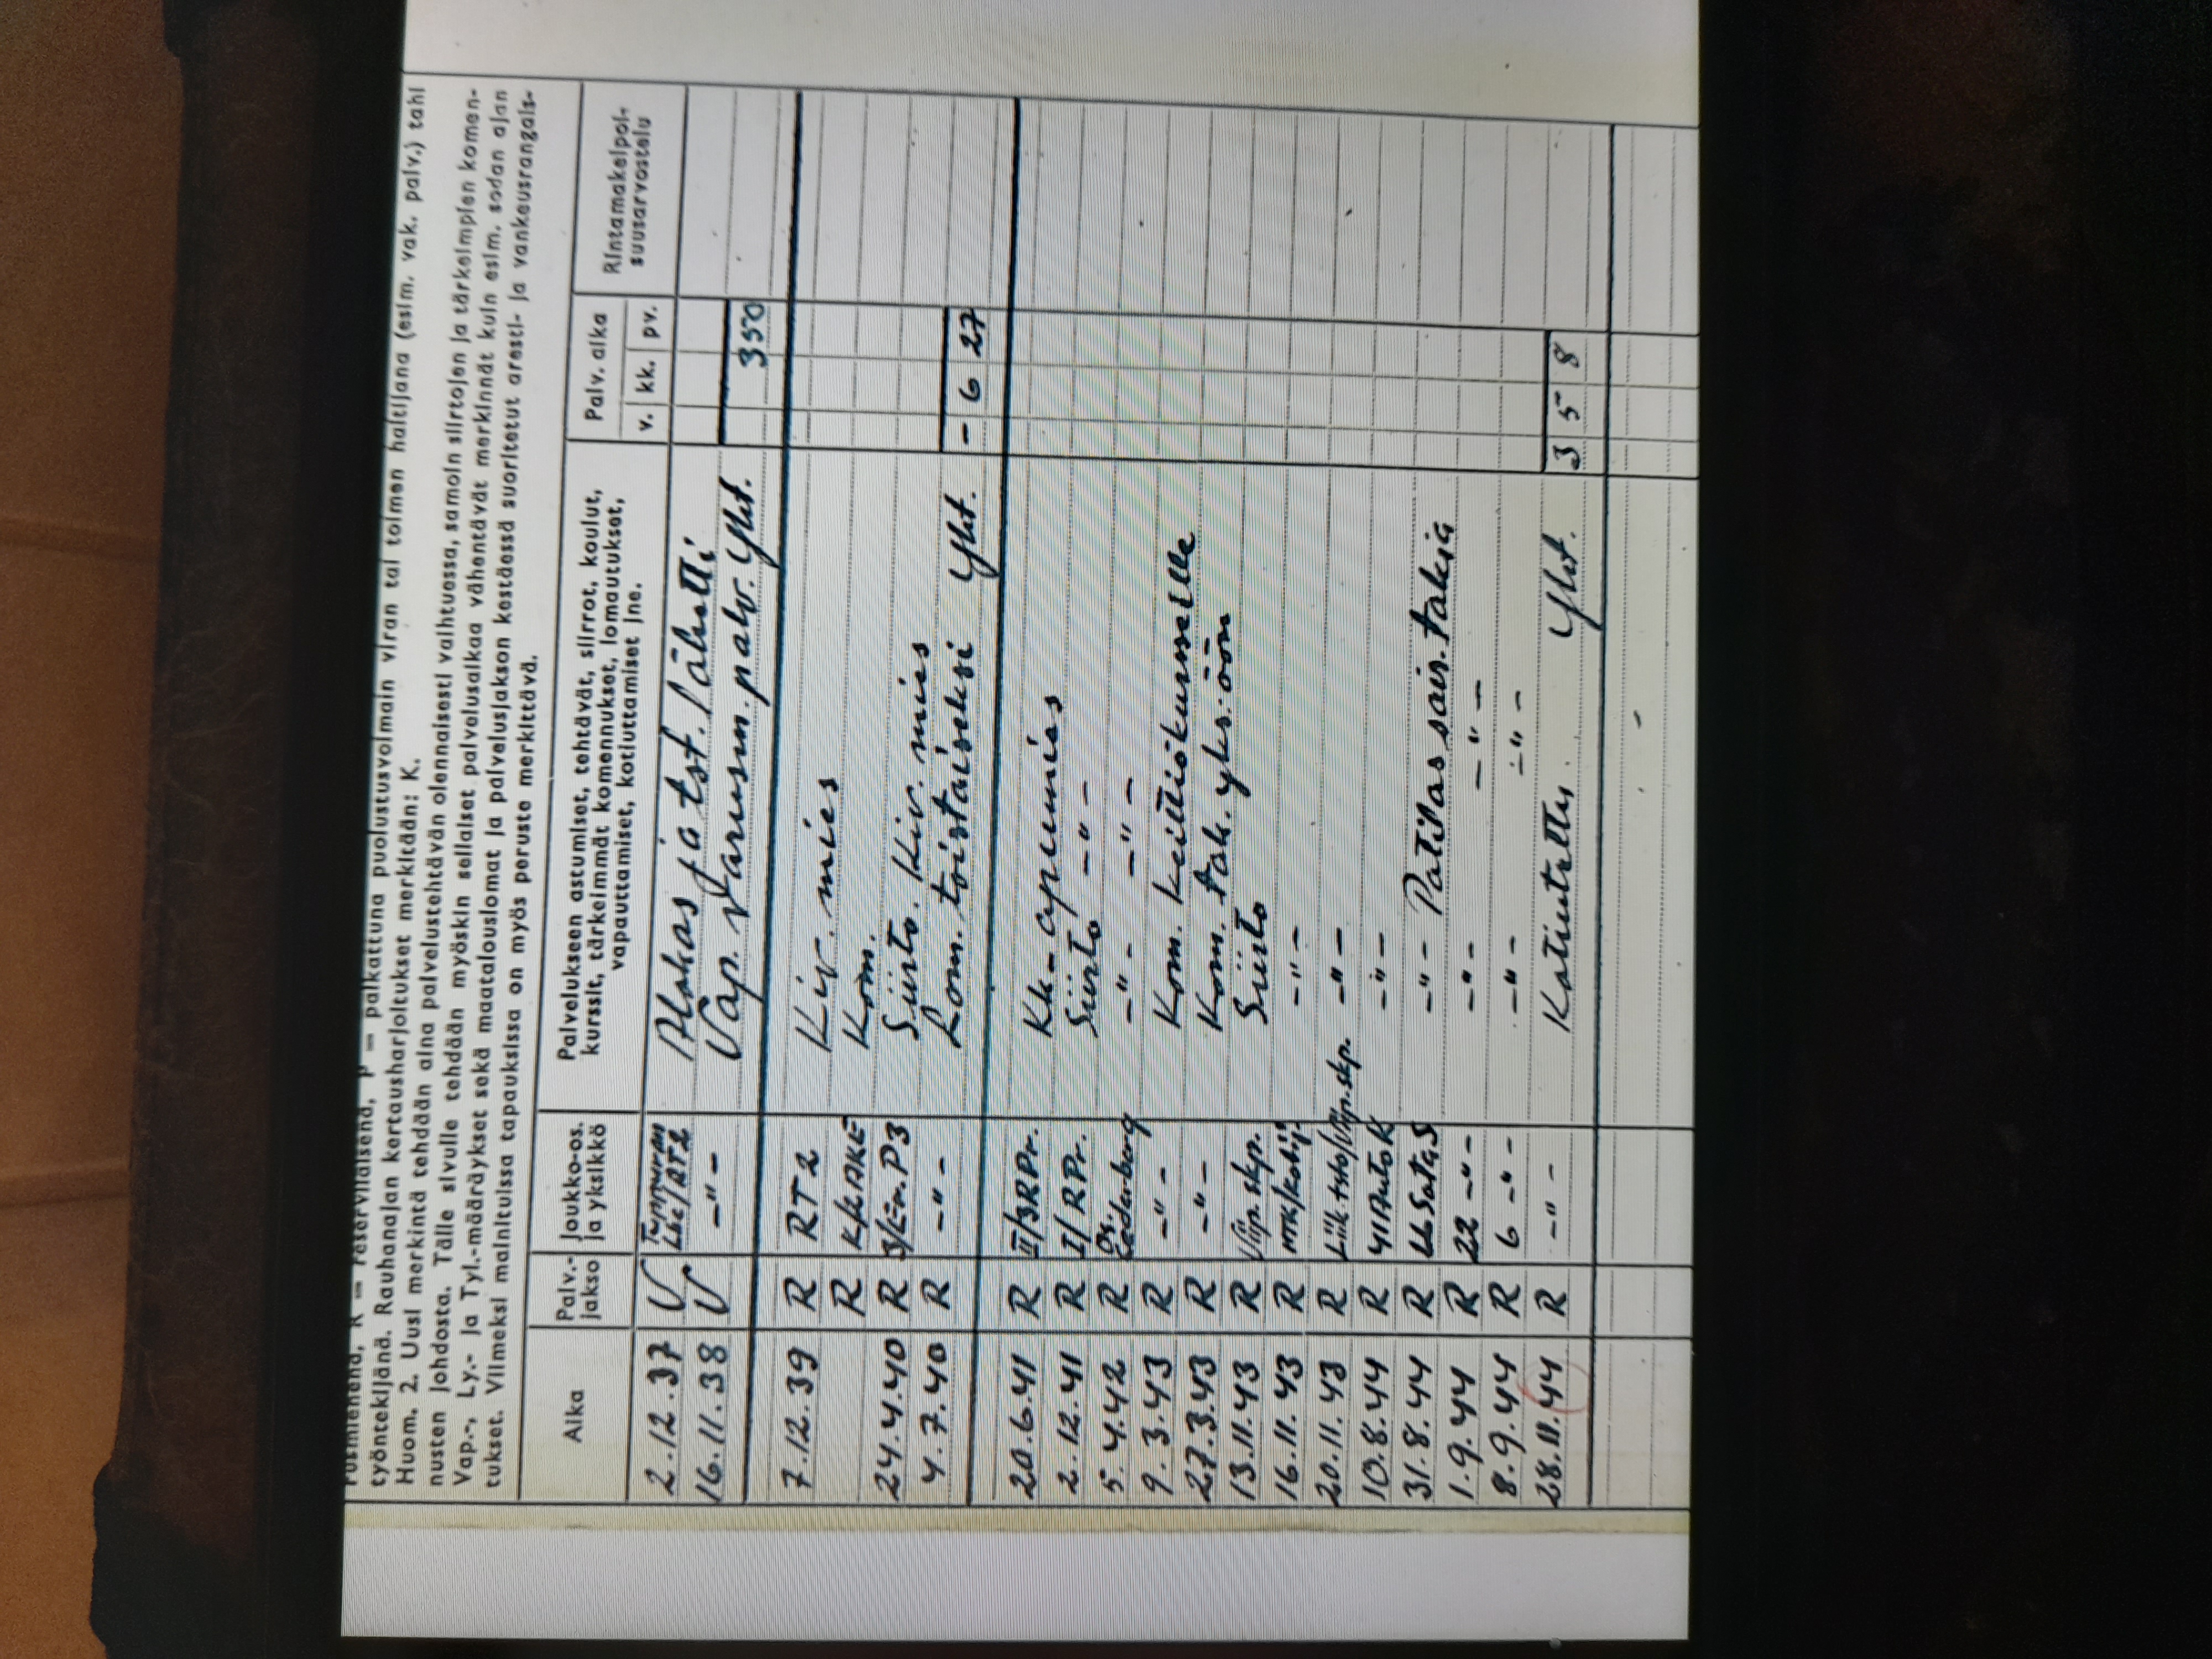 työntekijänä. Rauhanajan kertausharjoitukset merkitään: K.
Huom. 2. Uusi merkintä tehdään aina palvelustehtävän olennaisesti vaihtuessa, samoin siirtojen ja tärkeimpien komen-
nusten johdosta. Tälle sivulle tehdään myöskin sellaiset palvelusaikaa vähentävät merkinnät kuin esim. sodan ajan
Vap.-, Ly.- ja Tyl.-määräykset sekä maatalouslomat ja palvelusjakson kestäessä suoritetut aresti- ja vankeusrangais-
tukset. Viimeksi mainituissa tapauksissa on myös peruste merkittävä.
palkattuna puolustusvoimain viran tai toimen haltijana (esim. vak. palv.) tahi
Aika
Palv.-jakso
Joukko-os. ja yksikkö
Palvelukseen astumiset, tehtävät, siirrot, koulut, kurssit, tärkeimmät komennukset, lomautukset, vapauttamiset, kotiuttamiset jne.
Palv. aika
v. kk. pv.
Rintamakelpoi-suusarvostelu
2.12.37 V /RT2 Alokas ja tst. lähetti
16.11.38 V -"- Vap. varusm. palv. Yht. 350
7.12.39 R RT2 Kiv. mies
R Kom.
24.4.40 R P3 Siirto. Kiv. mies
4.7.40 R -"- Lom. toistaiseksi Yht. - 6 27
20.6.41 R II/3RPr. Kk-apumies
2.12.41 R I/RPr. Siirto -"-
5.4.42 R Os. Cederberg -"- -"-
9.3.43 R -"- Kom. keittiökurssille
27.3.43 R -"- Kom. tak. yks:öön
13.11.43 R Viip. skp. Siirto
16.11.43 R -"-
20.11.43 R Liik.tsto/Viip.skp. -"-
10.8.44 R 41AutoK -"-
31.8.44 R SotaS -"- Potilas sair. takia
1.9.44 R 22 -"- -"- -"-
8.9.44 R 6 -"- -"- -"-
28.11.44 R -"- Kotiutettu. Yht. 3 5 8